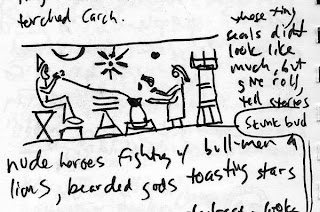 torched Carch.
those tiny
seals didnt
look like
much, but
give roll,
tell stories
nude heroes fighting bull-men &
lions, bearded gods toasting stars